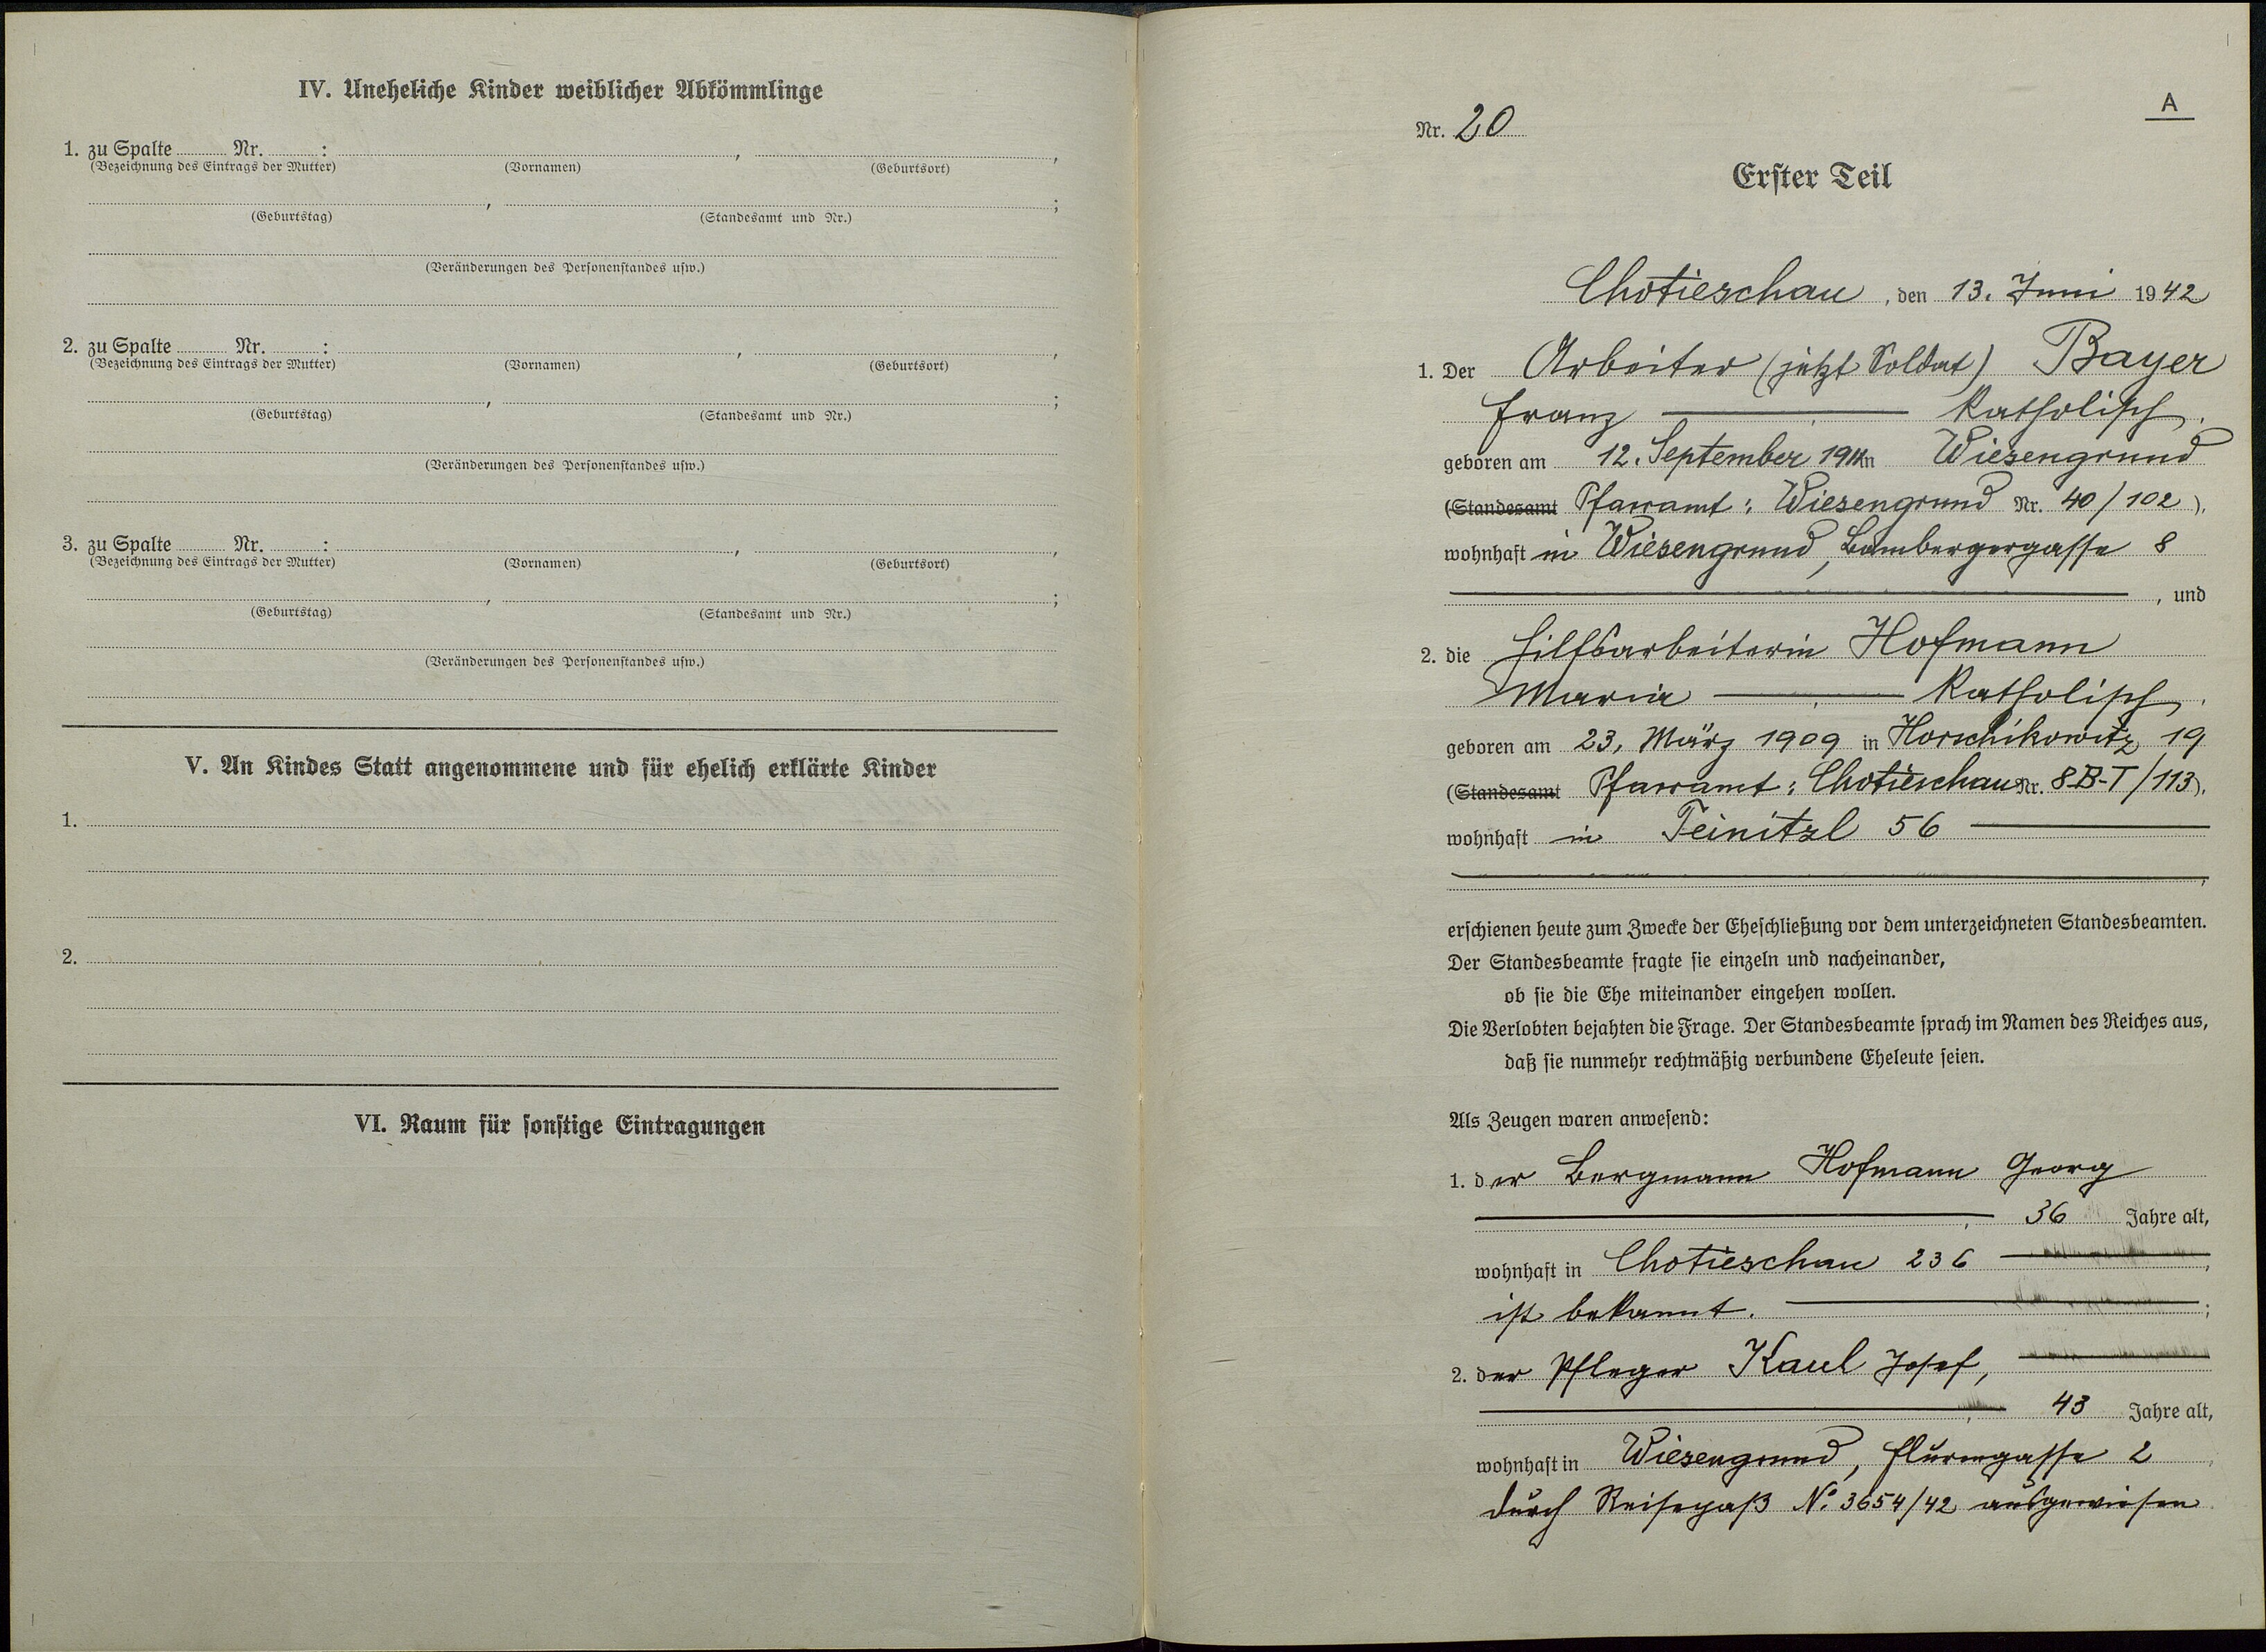 IV. Uneheliche Kinder weiblicher Abkömmlinge
1. zu Spalte Nr. : , ,
(Bezeichnung des Eintrags der Mutter) (Vornamen) (Geburtsort)
, ;
(Geburtstag) (Standesamt und Nr.)
(Veränderungen des Personenstandes usw.)
2. zu Spalte Nr. : , ,
(Bezeichnung des Eintrags der Mutter) (Vornamen) (Geburtsort)
, ;
(Geburtstag) (Standesamt und Nr.)
(Veränderungen des Personenstandes usw.)
3. zu Spalte Nr. : , ,
(Bezeichnung des Eintrags der Mutter) (Vornamen) (Geburtsort)
, ;
(Geburtstag) (Standesamt und Nr.)
(Veränderungen des Personenstandes usw.)
V. An Kindes Statt angenommene und für ehelich erklärte Kinder
1.
2.
VI. Raum für sonstige Eintragungen
A
Nr. 20
Erster Teil
Chotieschau, den 13. Juni 1942
1. Der Arbeiter (jetzt Soldat) Bayer
Franz — katholisch,
geboren am 12. September 1911 in Wiesengrund
(Standesamt Pfarramt: Wiesengrund Nr. 40/102),
wohnhaft in Wiesengrund, Bambergergasse 8
, und
2. die Hilfsarbeiterin Hofmann
Maria — katholisch,
geboren am 23. März 1909 in Horschikowitz 19
(Standesamt Pfarramt: Chotieschau Nr. 8B-T/113),
wohnhaft in Teinitzl 56
erschienen heute zum Zwecke der Eheschließung vor dem unterzeichneten Standesbeamten.
Der Standesbeamte fragte sie einzeln und nacheinander,
ob sie die Ehe miteinander eingehen wollen.
Die Verlobten bejahten die Frage. Der Standesbeamte sprach im Namen des Reiches aus,
daß sie nunmehr rechtmäßig verbundene Eheleute seien.
Als Zeugen waren anwesend:
1. der Bergmann Hofmann Georg
, 36 Jahre alt,
wohnhaft in Chotieschau 236 ,
ist bekannt. ;
2. der Pfleger Kaul Josef,
, 43 Jahre alt,
wohnhaft in Wiesengrund, Flurengasse 2 ,
durch Reisepaß No. 3654/42 ausgewiesen.